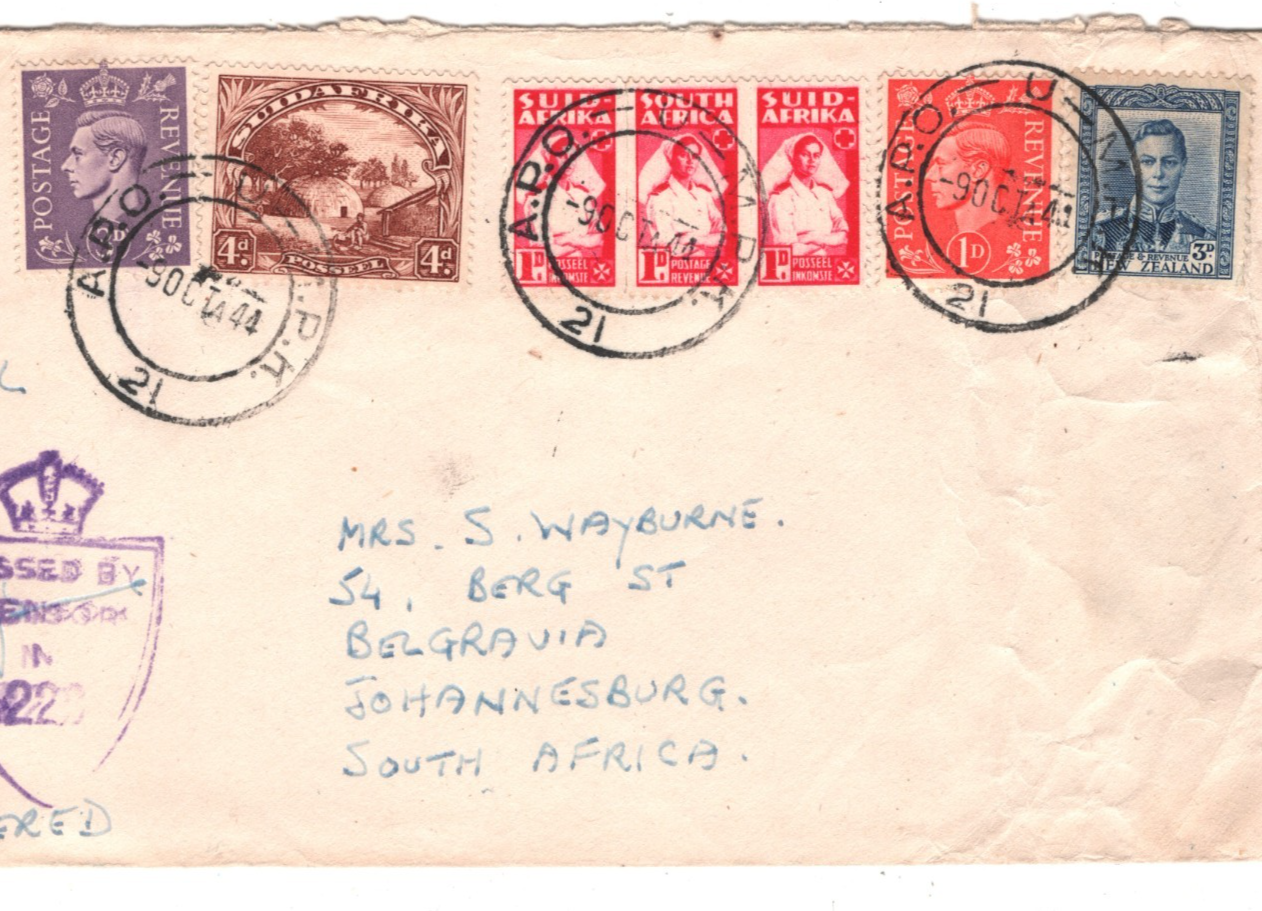 POSTAGE REVENUE
3D
SUIDAFRIKA
4d. 4d.
POSSEEL
SUID-
AFRIKA
1D. POSSEEL
INKOMSTE
SOUTH
AFRICA
1D. POSTAGE
REVENUE
SUID-
AFRIKA
1D. POSSEEL
INKOMSTE
POSTAGE REVENUE
1D
POSTAGE & REVENUE 3D
NEW ZEALAND
A.P.O. - U-M.P.K.
-9 OCT 44
21
A.P.O. - U-M.P.K.
-9 OCT 44
21
A.P.O. - U-M.P.K.
-9 OCT 44
21
SSED BY
ENSOR
IN
222
ERED
MRS. S. WAYBURNE.
54, BERG ST
BELGRAVIA
JOHANNESBURG.
SOUTH AFRICA.